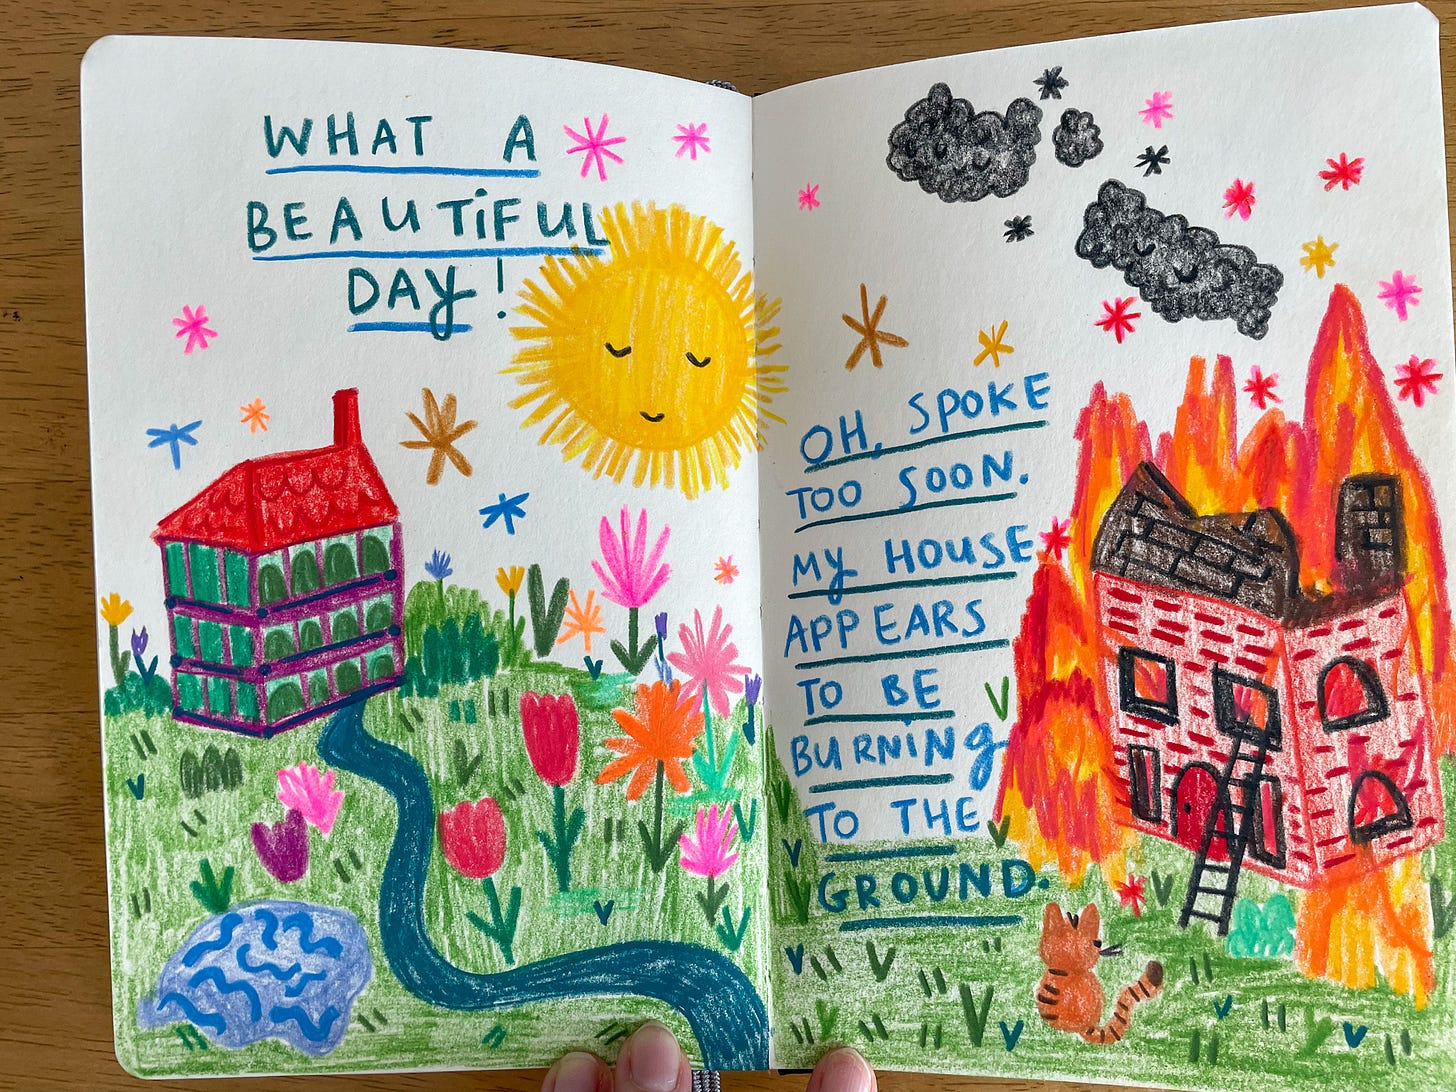 WHAT A
BEAUTiFUL
DAY!
OH, SPOKE
TOO SOON.
My HOUSE
APPEARS
TO BE
BURNiNg
TO THE
GROUND.